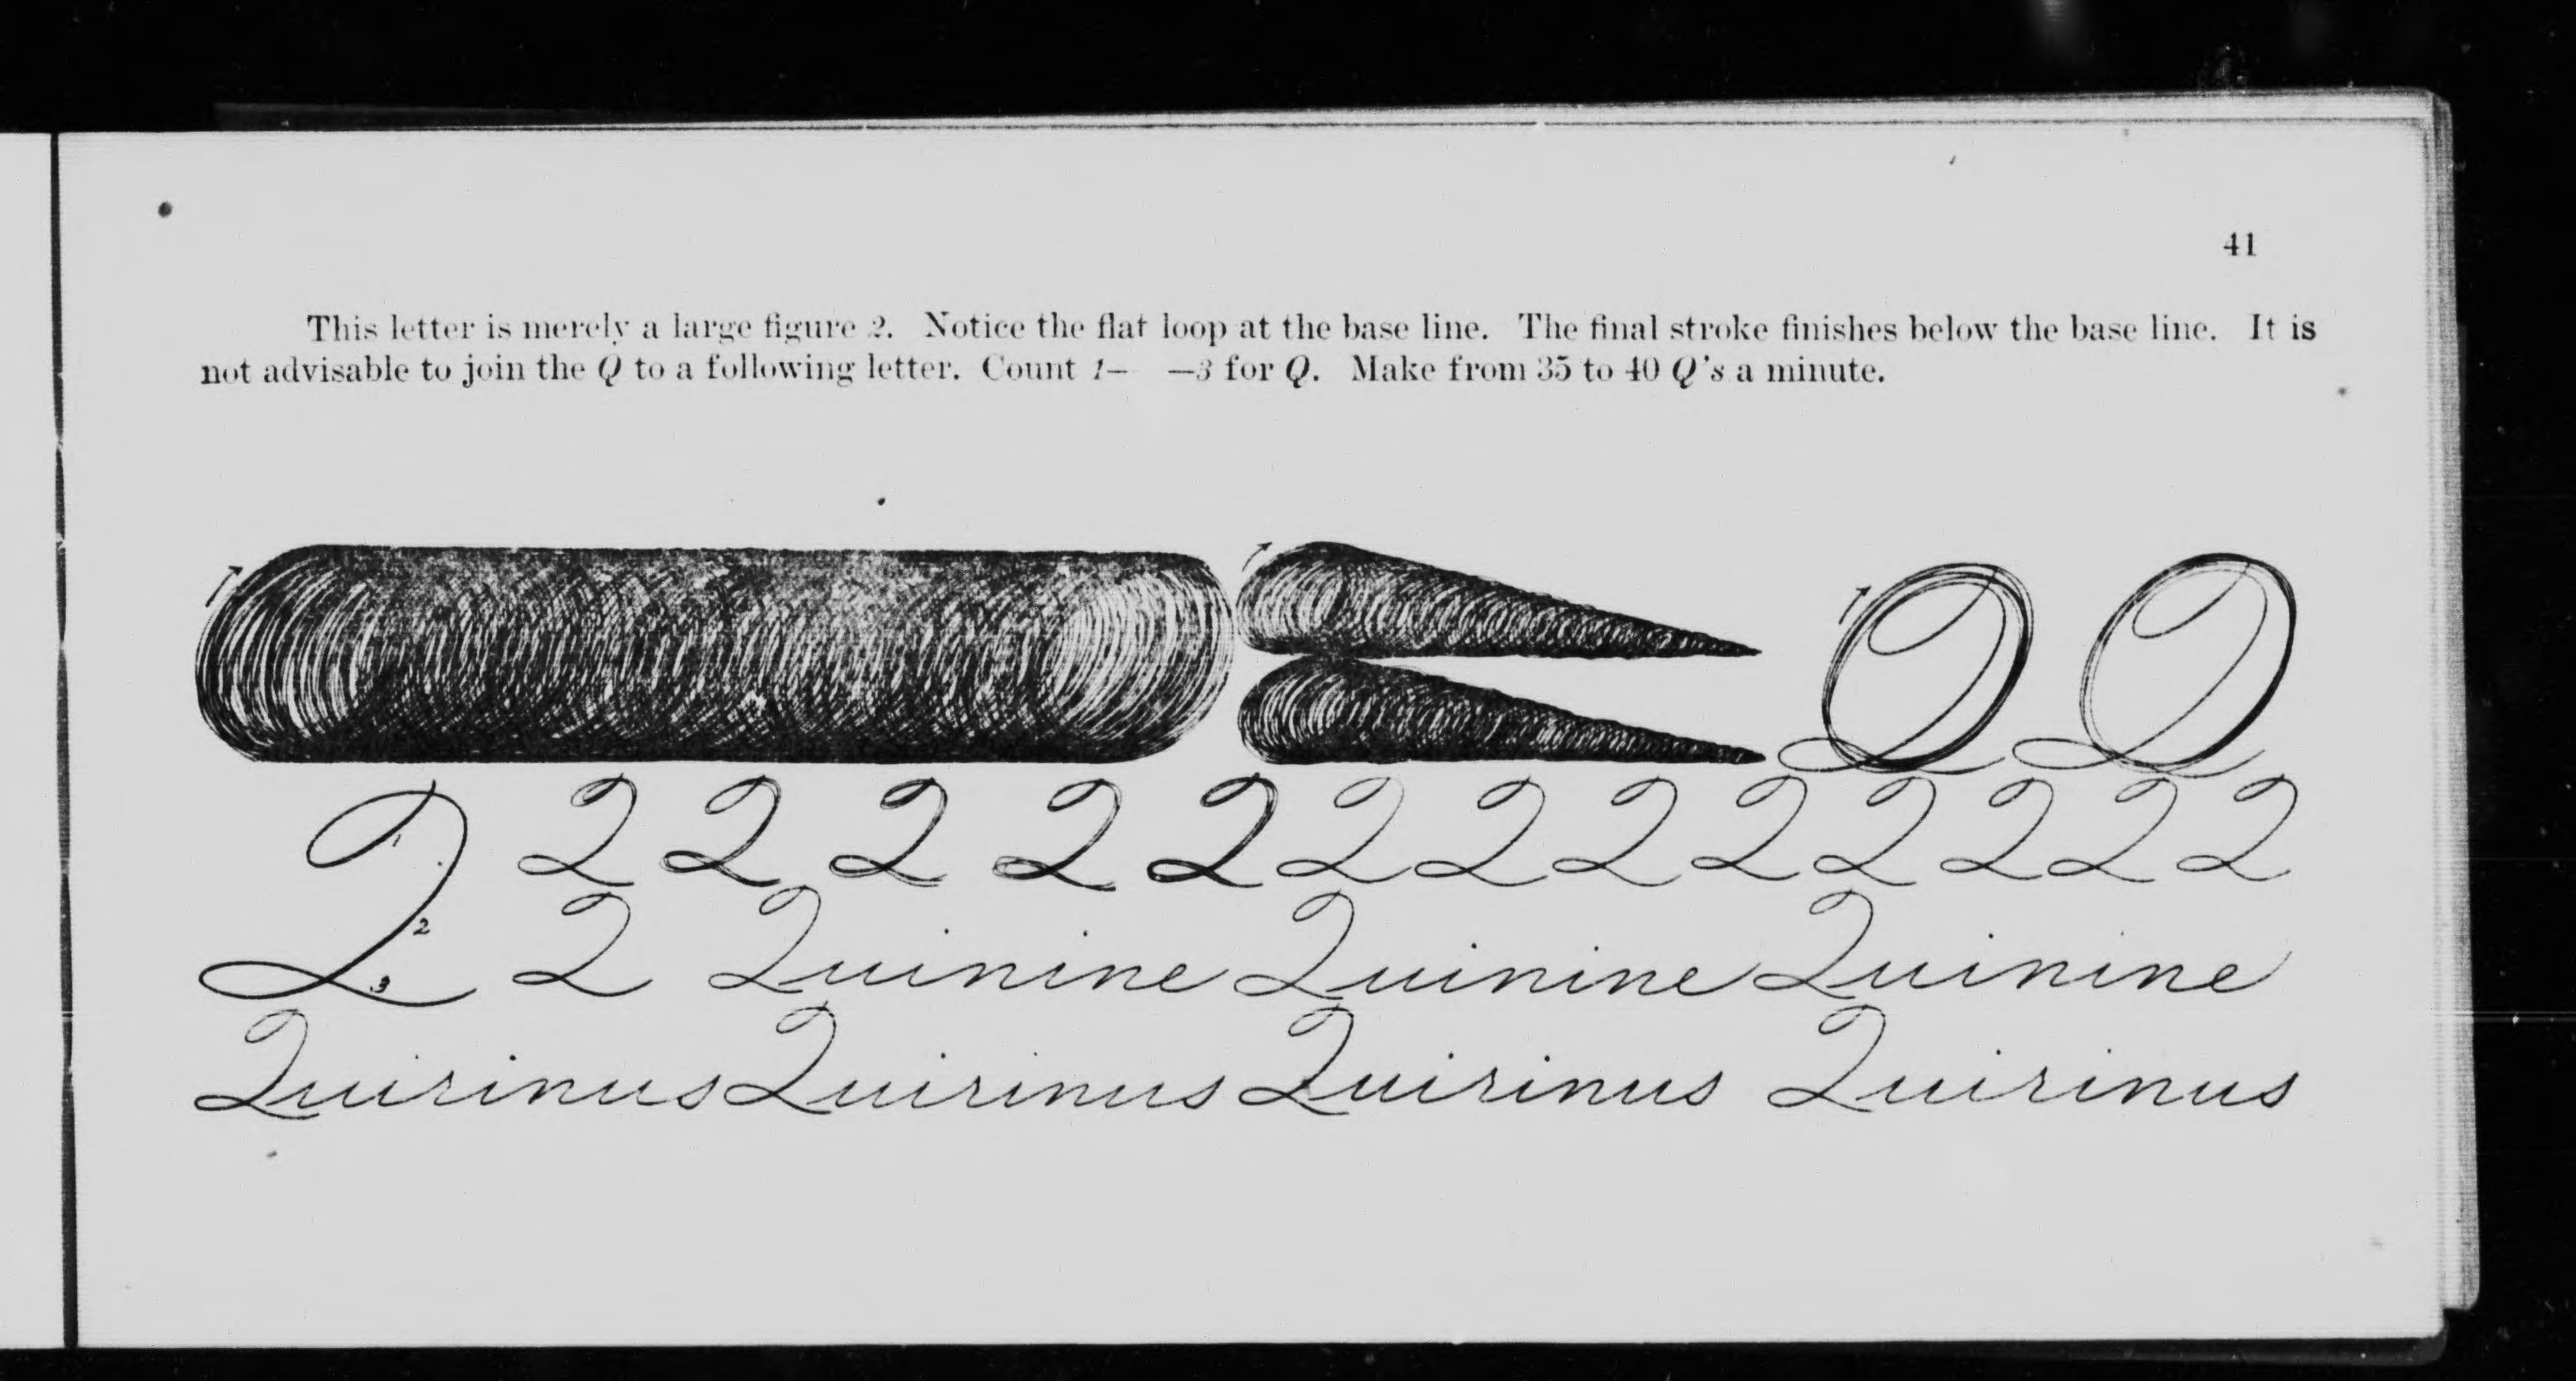 41
This letter is merely a large figure 2. Notice the flat loop at the base line. The final stroke finishes below the base line. It is
not advisable to join the Q to a following letter. Count 1– –3 for Q. Make from 35 to 40 Q's a minute.
Q Q
Q Q Q Q Q Q Q Q Q Q Q Q Q Q
1 2 3
Q Quinine Quinine Quinine
Quirinus Quirinus Quirinus Quirinus